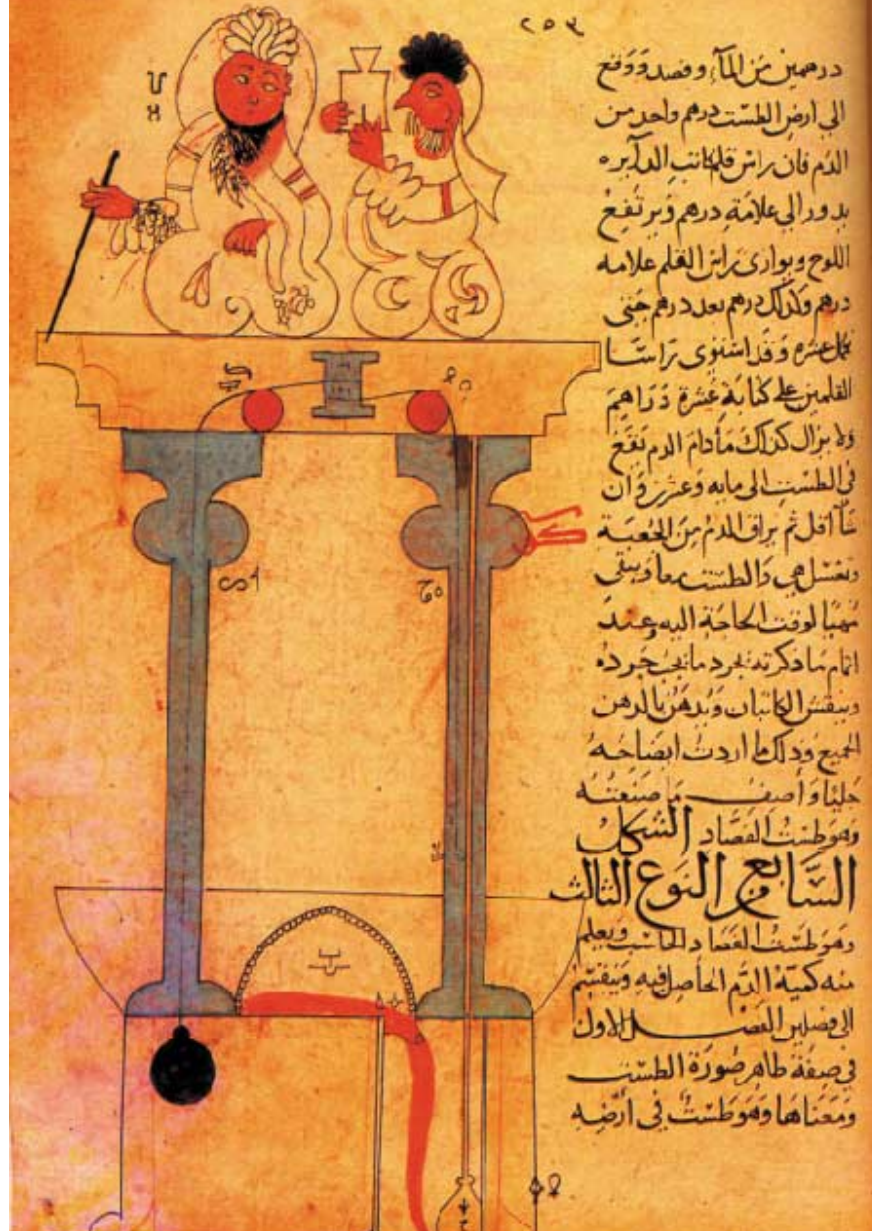 ٢٥٣
درهمين من الماء وفصد ووقع
الى ارض الطست درهم واحد من
الدم فان راس قلم كاتب الدايره
يدور الى علامة درهم ويرتفع
اللوح ويوازى راس القلم علامه
درهم وكذلك درهم بعد درهم حتى
تكمل عشره وقد استوى راسا
القلمين على كتابة عشرة دراهم
ولا يزال كذلك مادام الدم يقع
فى الطست الى مايه وعشرين وان
شا اقل ثم يراق الدم من الجعبة
وتغسل هى والطست معا ويبقى
مهيا لوقت الحاجة اليه وعند
اتمام ما ذكرته يجرد ما يجب جرده
وينقش الكاتبان ويدهن بالدهن
الجميع وذلك ما اردت ايضاحه
جليا واصف ما صنعته
وهو طست الفصاد الشكل
السابع النوع الثالث
وهو طست الفصاد الحاسب ويعلم
منه كمية الدم الحاصل فيه وينقسم
الى فصلين الفصل الاول
فى صفة ظاهر صورة الطست
ومعناها وهو طست فى ارضه